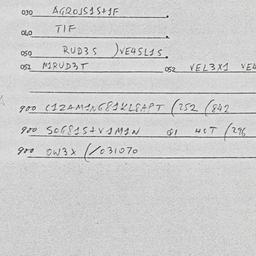 030 AGROJS1S+1F
040 TIF
050 RUD3S )VE4SL1S
052 M1RUD3T 052 VEL3X1 VE4
900 C1Z4M1NG81KL8APT (252 (842
900 SOG81S+V1M1N G1 HCT (296
900 OW3X (/031070